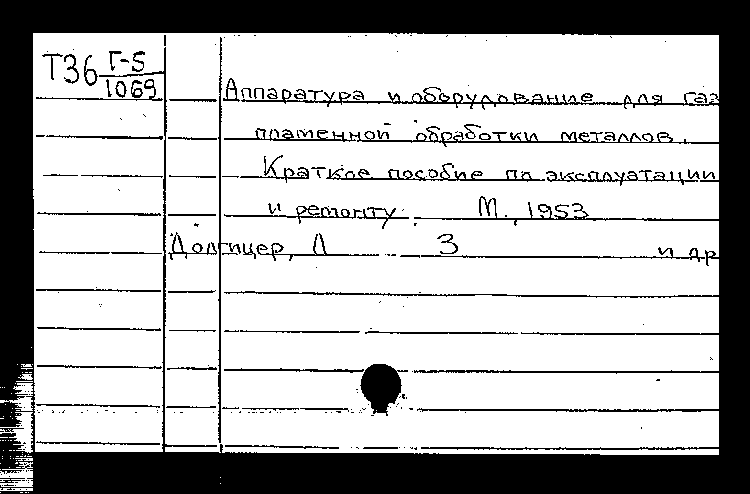 Т36 Г-5
1069
Аппаратура и оборудование для газ
пламенной обработки металлов.
Краткое пособие по эксплуатации
и ремонту. М., 1953
Долгицер, Л З и др